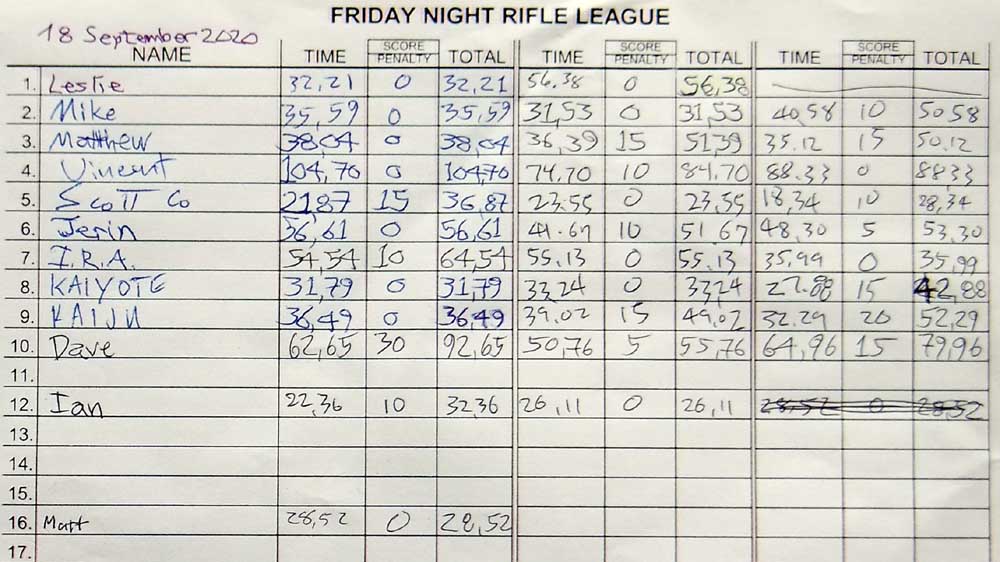 FRIDAY NIGHT RIFLE LEAGUE
18 September 2020
NAME TIME SCORE PENALTY TOTAL TIME SCORE PENALTY TOTAL TIME SCORE PENALTY TOTAL
1. Leslie 32,21 0 32,21 56.38 0 56,38
2. Mike 35,59 0 35,59 31,53 0 31,53 40,58 10 50.58
3. Matthew 38,04 0 38,04 36,39 15 51,39 35.12 15 50.12
4. Vincent 104,70 0 104,70 74.70 10 84,70 88.33 0 88 33
5. Scott Co 21,87 15 36,87 23.55 0 23,55 18,34 10 28,34
6. Jerin 56,61 0 56,61 41.67 10 51,67 48,30 5 53,30
7. I.R.A. 54,54 10 64,54 55.13 0 55.13 35,99 0 35,99
8. KAIYOTE 31,79 0 31,79 33,24 0 33,24 27.88 15 42,88
9. KAIJU 36,49 0 36,49 39.02 15 49,02 32.29 20 52,29
10. Dave 62,65 30 92,65 50,76 5 55,76 64,96 15 79,96
11.
12. Ian 22,36 10 32,36 26,11 0 26,11 28,52 0 28,52
13.
14.
15.
16. Matt 28,52 0 28,52
17.